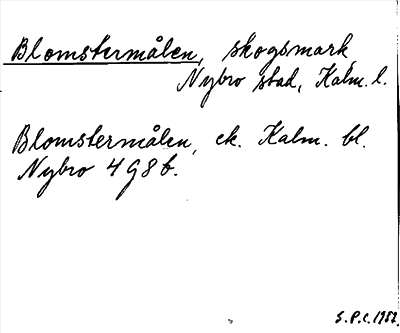 Blomstermålen, skogsmark,
Nybro stad, Kalm. l.
Blomstermålen, ek. Kalm. bl.
Nybro 4 G 8 b.
S.P.C. 1957